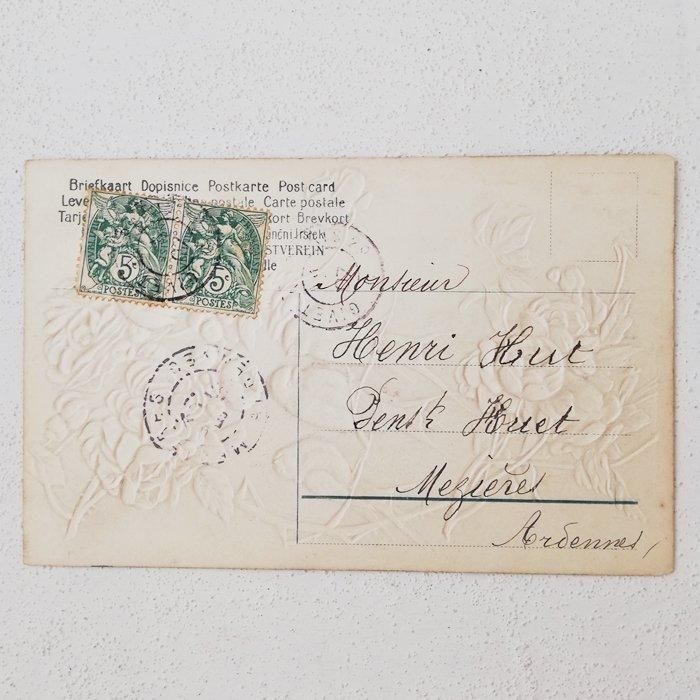 Briefkaart Dopisnice Postkarte Post card
Leve postale Carte postale
Tarj kort Brevkort
STVEREIN
5c 5c
POSTES POSTES
GIVET
Monsieur
Henri Huet
Pens t Huet
Mezières
Ardennes,